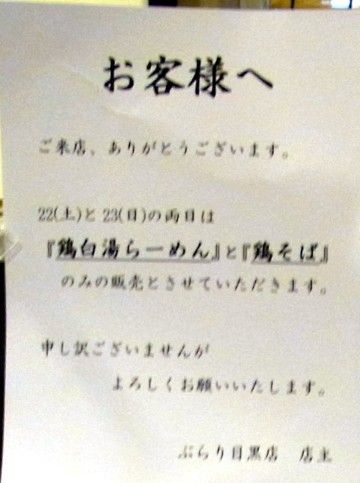 お客様へ
ご来店、ありがとうございます。
22(土)と23(日)の両日は
『鶏白湯らーめん』と『鶏そば』
のみの販売とさせていただきます。
申し訳ございませんが
よろしくお願いいたします。
ぶらり目黒店 店主